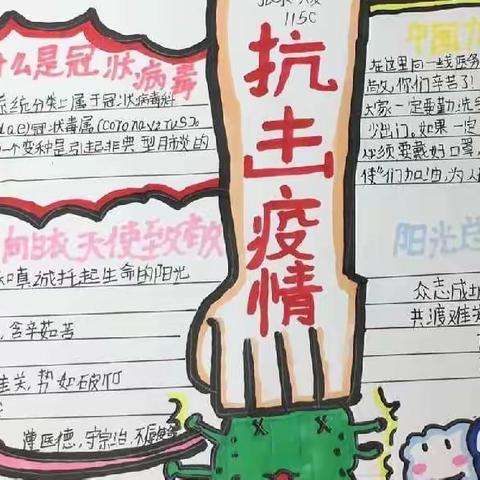 115C
抗击疫情
什么是冠状病毒
系统分类上属于冠状病毒科
冠状毒属(Coronavirus)
一个变种是引起非典型肺炎的
向白衣天使致敬
真诚托起生命的阳光
含辛茹苦
难关,势如破竹
守宗治,
中国加
在这里向一线医务
你们辛苦了!
大家一定要勤洗手
少出门。如果一定
必须要戴好口罩,
使"们加油,为人
阳光总
众志成城
共渡难关